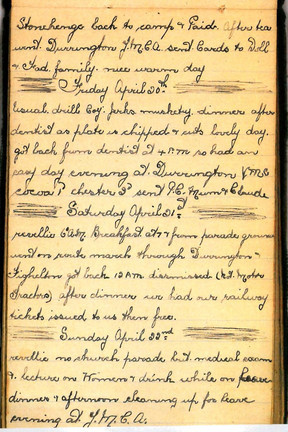 Stonehenge back to camp & Paid. After tea
went Durrington Y.M.C.A. sent Cards to Doll
& Fad. family. nice warm day
Friday April 20th
Usual. drill Coy. jerks musketry. dinner after
dentist as plate is chipped & cuts lovely day.
got back from dentist at 4 P.M so had an
easy day evening at Durrington Y.M.C
cocoa chester sent P.C. Mum & Claude
Saturday April 21st
revellie Breakfast at 7 from parade ground
went on route march through Durrington &
Fighelton got back 12 AM dismissed Motor
Tractors) after dinner we had our railway
tickets issued to us then free.
Sunday April 22nd
revellie no church parade but medical exam
& lecture on Women & drink while on leave
dinner & afternoon cleaning up for leave
evening at Y.M.C.A.